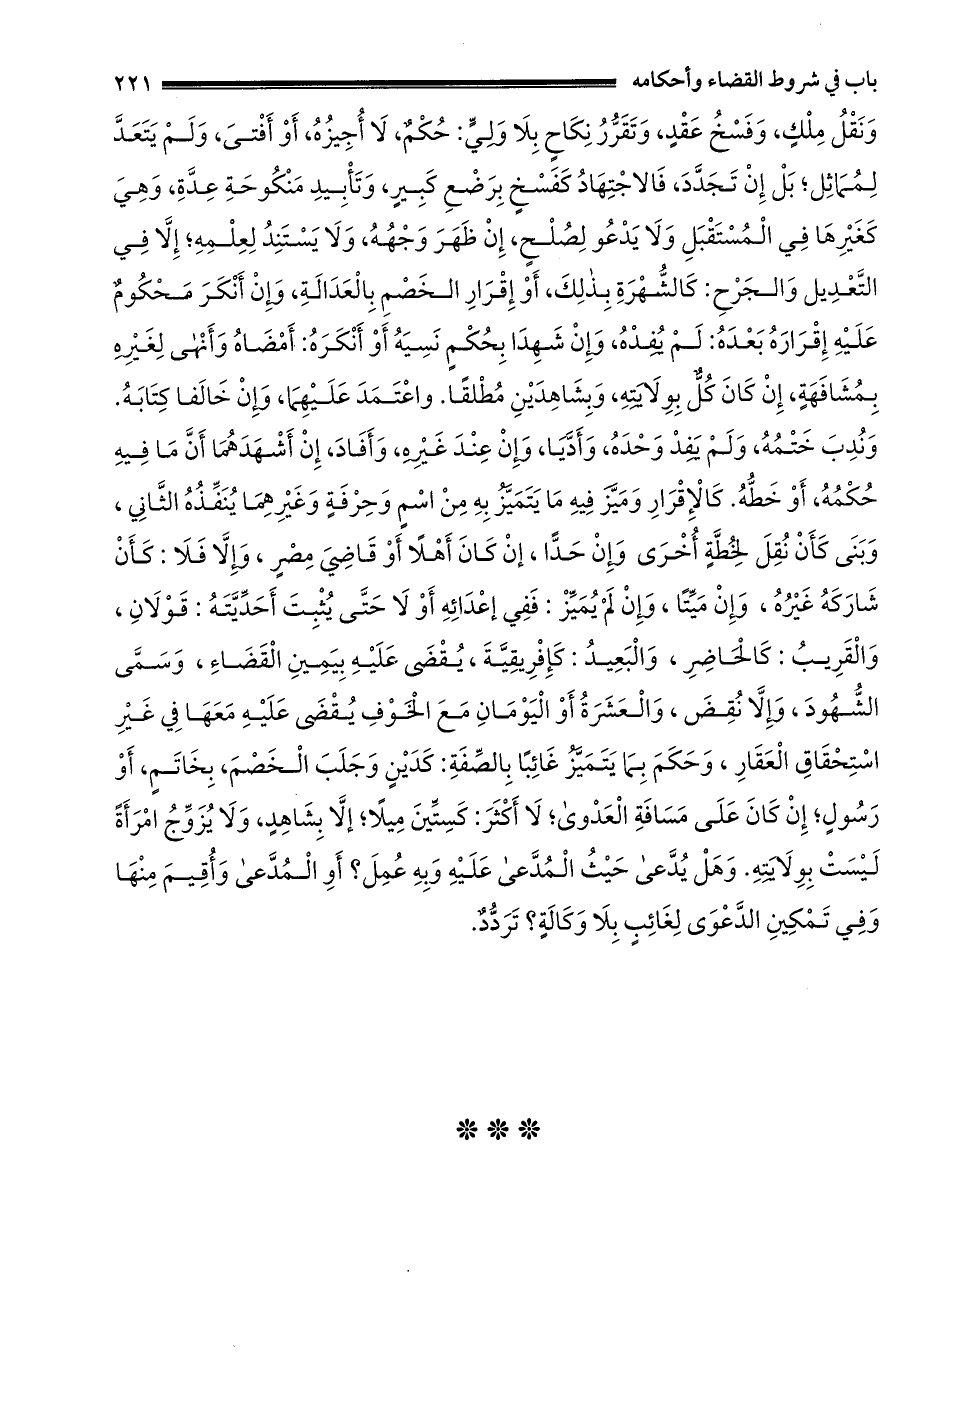 باب في شروط القضاء وأحكامه ٢٢١
وَنَقْلُ مِلْكٍ، وَفَسْخُ عَقْدٍ، وَتَقَرُّرُ نِكَاحٍ بِلَا وَلِيٍّ: حُكْمٌ، لَا أُجِيزُهُ، أَوْ أَفْتَىَ، وَلَمْ يَتَعَدَّ
لِمُمَاثِلٍ؛ بَلْ إِنْ تَجَدَّدَ، فَالاجْتِهَادُ كَفَسْخٍ بِرَضْعِ كَبِيرٍ، وَتَأْبِيدِ مَنْكُوحَةِ عِدَّةٍ، وَهِيَ
كَغَيْرِهَا فِي الْمُسْتَقْبَلِ وَلَا يَدْعُو لِصُلْحٍ، إِنْ ظَهَرَ وَجْهُهُ، وَلَا يَسْتَنِدُ لِعِلْمِهِ؛ إِلَّا فِي
التَّعْدِيلِ وَالْجَرْحِ: كَالشُّهْرَةِ بِذٰلِكَ، أَوْ إِقْرَارِ الْخَصْمِ بِالْعَدَالَةِ، وَإِنْ أَنْكَرَ مَحْكُومٌ
عَلَيْهِ إِقْرَارَهُ بَعْدَهُ: لَمْ يُفِدْهُ، وَإِنْ شَهِدَا بِحُكْمٍ نَسِيَهُ أَوْ أَنْكَرَهُ: أَمْضَاهُ وَأَنْهٰى لِغَيْرِهِ
بِمُشَافَهَةٍ، إِنْ كَانَ كُلٌّ بِوِلَايَتِهِ، وَبِشَاهِدَيْنِ مُطْلَقًا. واعْتَمَدَ عَلَيْهِمَا، وَإِنْ خَالَفَا كِتَابَهُ.
وَنُدِبَ خَتْمُهُ، وَلَمْ يَفِدْ وَحْدَهُ، وَأَدَّيَا، وَإِنْ عِنْدَ غَيْرِهِ، وَأَفَادَ، إِنْ أَشْهَدَهُمَا أَنَّ مَا فِيهِ
حُكْمُهُ، أَوْ خَطُّهُ. كَالْإِقْرَارِ وَمَيَّزَ فِيهِ مَا يَتَمَيَّزُ بِهِ مِنْ اسْمٍ وَحِرْفَةٍ وَغَيْرِهِمَا يُنَفِّذُهُ الثَّانِي ،
وَبَنَى كَأَنْ نُقِلَ لِخُطَّةٍ أُخْرَى وَإِنْ حَدًّا ، إِنْ كَانَ أَهْلًا أَوْ قَاضِيَ مِصْرٍ ، وَإِلَّا فَلَا : كَأَنْ
شَارَكَهُ غَيْرُهُ ، وَإِنْ مَيِّتًا ، وَإِنْ لَمْ يُمَيِّزْ : فَفِي إِعْدَائِهِ أَوْ لَا حَتَّى يُثْبِتَ أَحَدِّيَّتَهُ : قَوْلَانِ ،
وَالْقَرِيبُ : كَالْحَاضِرِ ، وَالْبَعِيدُ : كَإِفْرِيقِيَّةَ ، يُقْضَى عَلَيْهِ بِيَمِينِ الْقَضَاءِ ، وَسَمَّى
الشُّهُودَ ، وَإِلَّا نُقِضَ ، وَالْعَشَرَةُ أَوْ الْيَوْمَانِ مَعَ الْخَوْفِ يُقْضَى عَلَيْهِ مَعَهَا فِي غَيْرِ
اسْتِحْقَاقِ الْعَقَارِ ، وَحَكَمَ بِمَا يَتَمَيَّزُ غَائِبًا بِالصِّفَةِ: كَدَيْنٍ وَجَلَبَ الْخَصْمَ، بِخَاتَمٍ، أَوْ
رَسُولٍ؛ إِنْ كَانَ عَلَى مَسَافَةِ الْعَدْوىٰ؛ لَا أَكْثَرَ: كَسِتِّينَ مِيلًا؛ إلَّا بِشَاهِدٍ، وَلَا يُزَوِّجُ امْرَأَةً
لَيْسَتْ بِوِلَايَتِهِ. وَهَلْ يُدَّعىٰ حَيْثُ الْمُدَّعىٰ عَلَيْهِ وَبِهِ عُمِلَ؟ أَوِ الْمُدَّعىٰ وَأُقِيمَ مِنْهَا
وَفِي تَمْكِينِ الدَّعْوَى لِغَائِبٍ بِلَا وَكَالَةٍ؟ تَرَدُّدٌ.